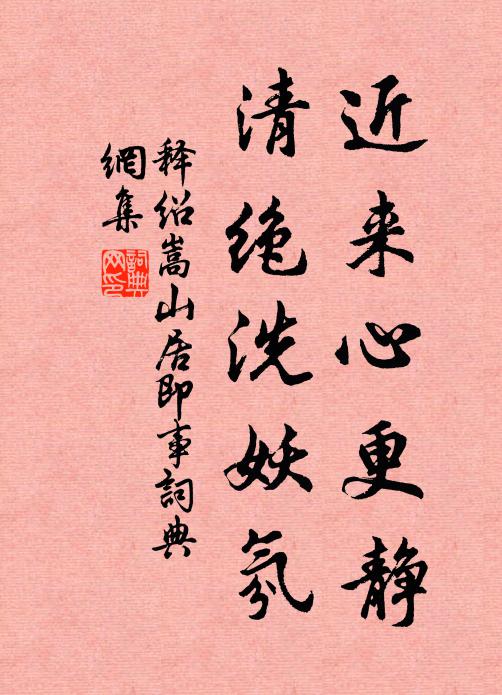 近来心更静
清绝洗妖氛
释绍嵩山居即事詞典
網集
詞典网印